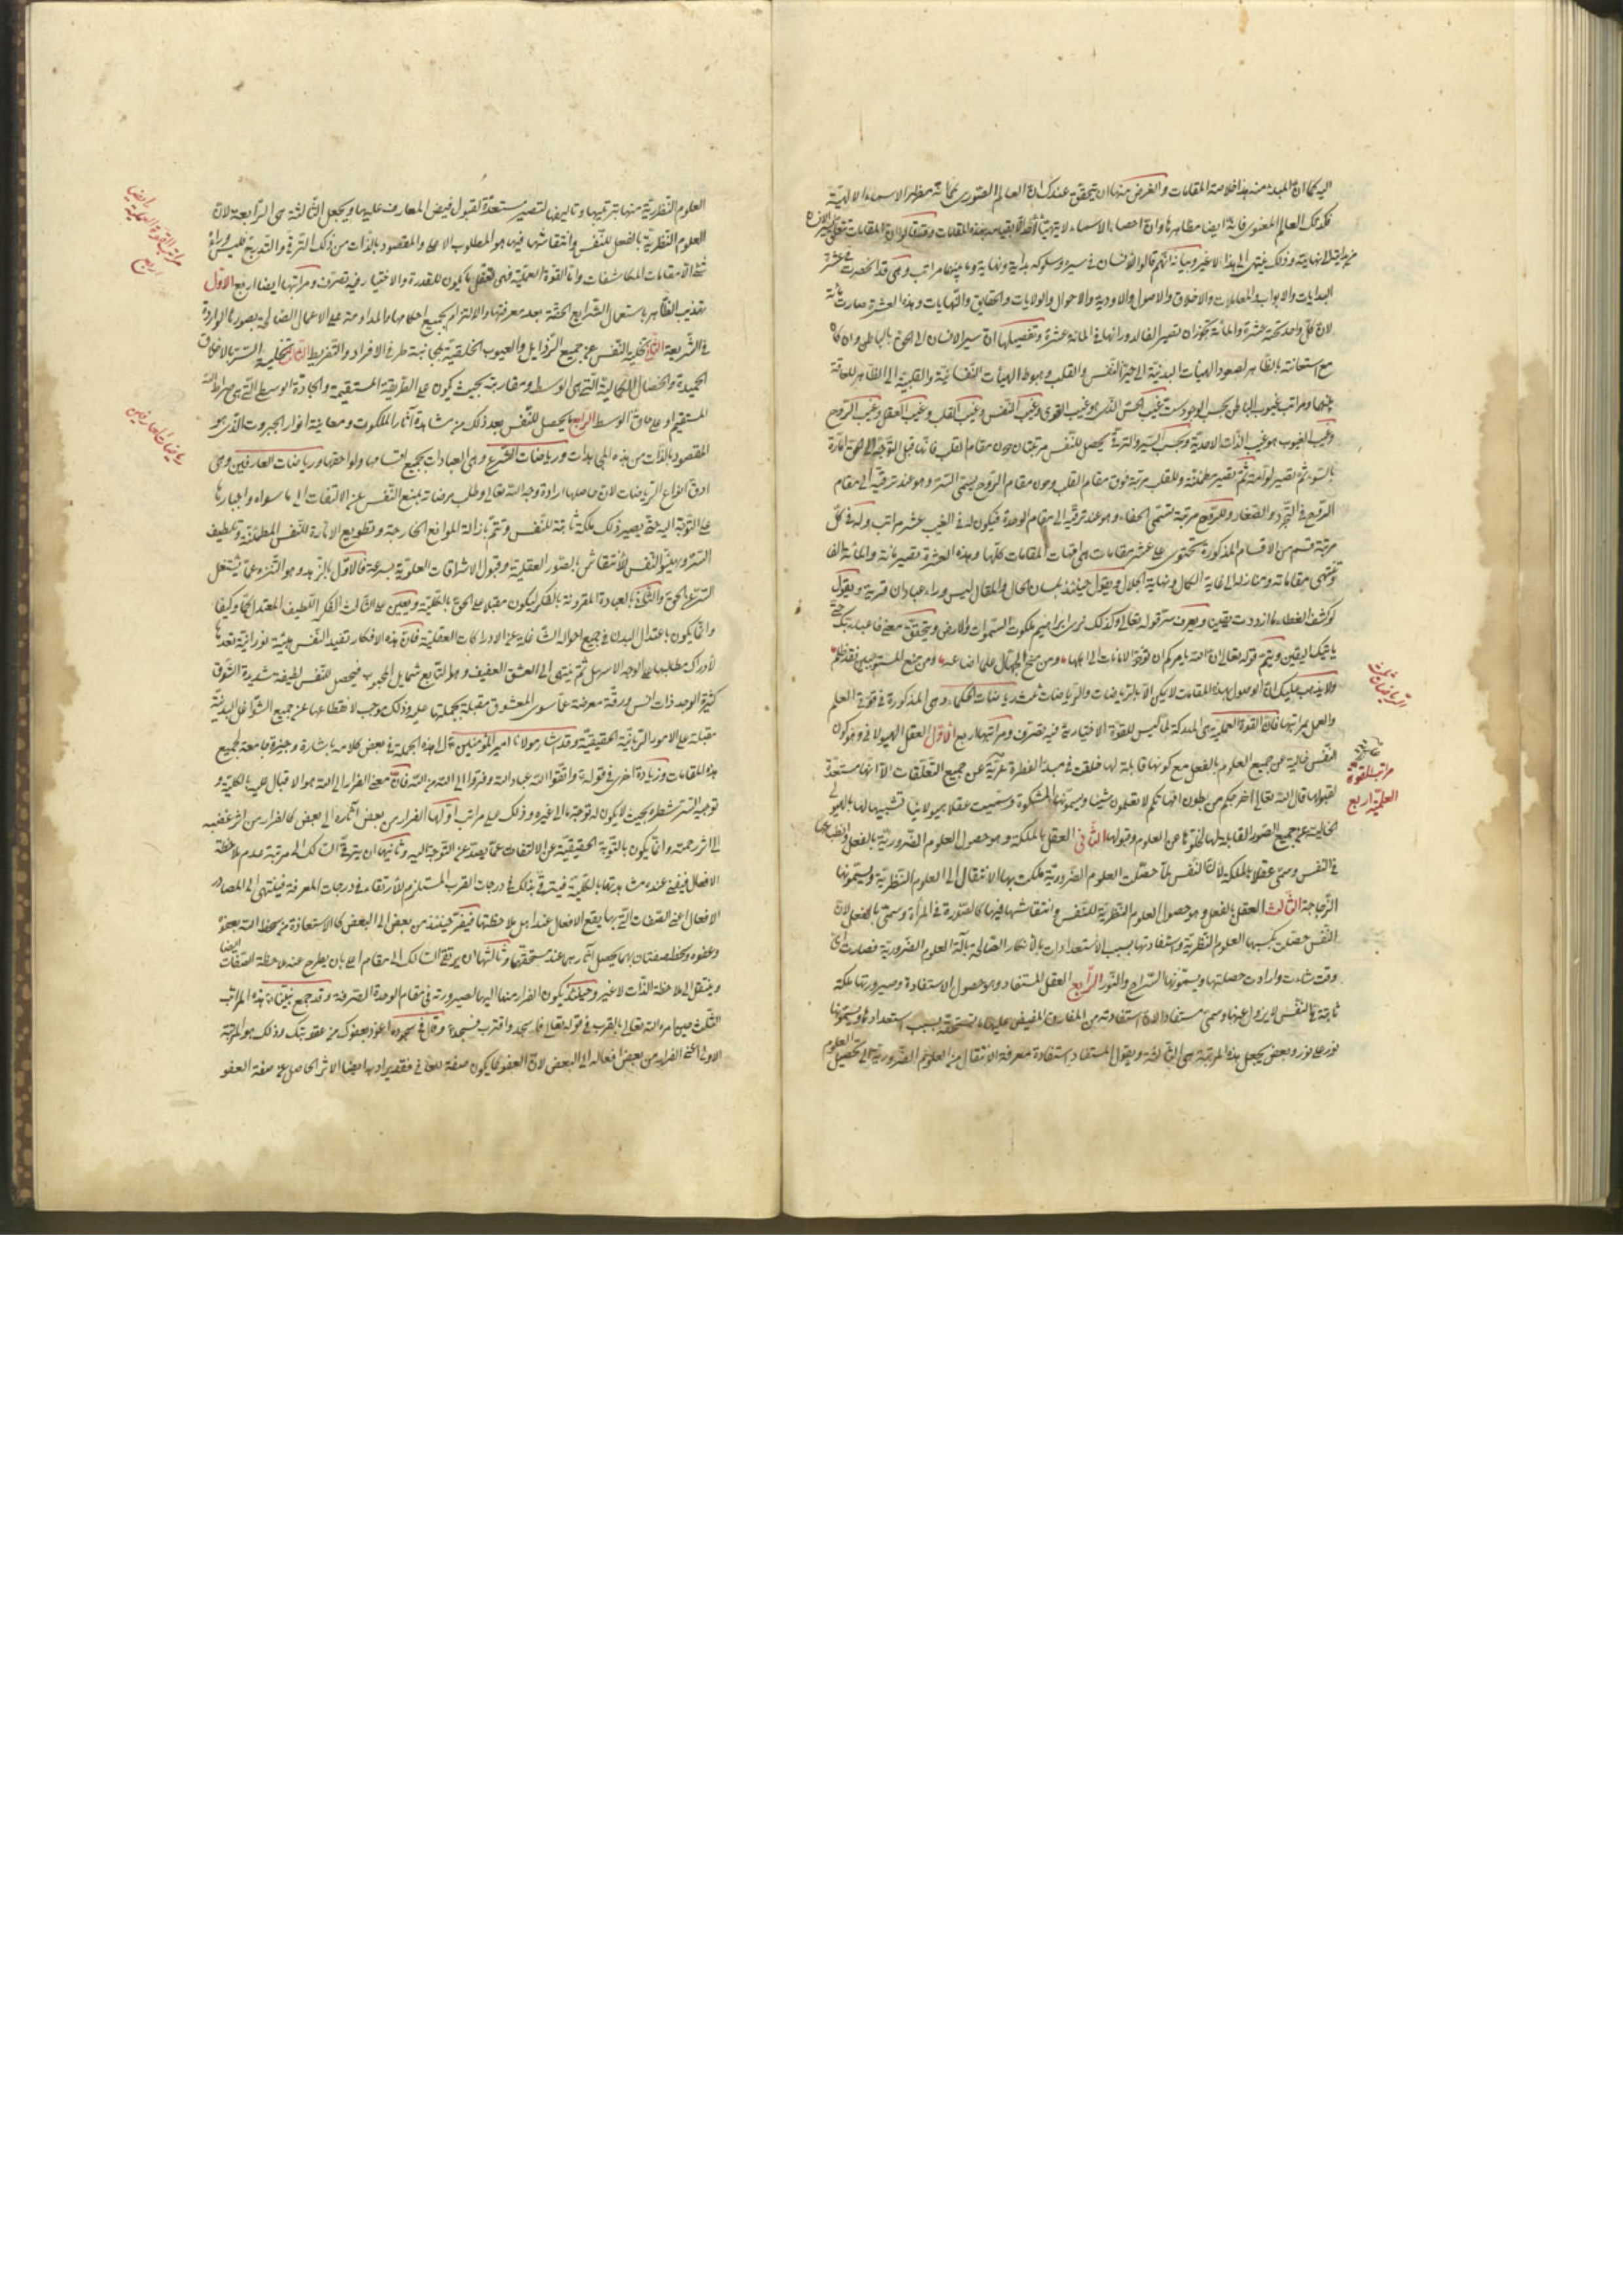 اليه كما ان المبدء منه بهذا خلاصة المقامات والغرض منها ان يتحقق عندك ان العالم الصورى كما انه مظهر الاسماء الالهية
فكذلك العالم المعنوى فانه ايضا مظاهرها وان احصاء الاسماء لا يتهيأ
نهايته وذلك ينتهى الى هذا الاخير وبيانه انهم قالوا للانسان فى سيره وسلوكه بداية ونهاية وما بينهما مراتب وهى قد انحصرت فى عشر
البدايات والابواب والمعاملات والاخلاق والاصول والاودية والاحوال والولايات والحقايق والنهايات وهذه العشرة صارت مائة
لان كل واحد تحته عشرة والمائة تصير الفا لدورانها فى المائة عشرة وتفصيلها ان سير الانسان الى الحق بالباطن وان كان
مع استعانته بالظاهر لصعود الهيأت البدنية الى حيز النفس والقلب وهبوط الهيأت النفسانية والقلبية الى الظاهر للعلاقة
بينهما ومراتب غيوب الباطن بحسب الوجود ستة غيب الجن الذى هو غيب القوى وغيب النفس وغيب القلب وغيب العقل وغيب الروح
وغيب الغيوب هو غيب الذات الاحدية وبحسب السير والترقى يحصل للنفس مرتبتان دون مقام القلب فانها قبل التوجه الى الحق امارة
بالسوء ثم تصير لوامة ثم تصير مطمئنة وللقلب مرتبة فوق مقام القلب ودون مقام الروح يسمى السر وهو عند ترقيه الى مقام
الروح فى التجرد والصفاء وللروح مرتبة تسمى الخفاء وهو عند ترقيه الى مقام الوحدة فيكون له فى الغيب عشر مراتب وله فى كل
مرتبة قسم من الاقسام المذكورة تحتوى على عشر مقامات هى امهات المقامات كلها وهذه العشرة تصير مائة والمائة الفا
وينتهى مقاماته ومنازله الى غاية الكمال ونهاية الجلال ويقول حينئذ بلسان الحال والمقال ليس وراء عبادان قرية ويقول
لو كشف الغطاء ما ازددت يقينا ويعرف سر قوله تعالى وكذلك نرى ابراهيم ملكوت السموات والارض ويتحقق معنى فاعبد ربك حتى
ياتيك اليقين ويتم قوله تعالى ان الله يامركم ان تؤدوا الامانات الى اهلها ومن منح الجهال علما اضاعه ومن منع المستوجبين فقد ظلم
ولا يذهب عليك ان الوصول بهذه المقامات لا يمكن الا بالرياضات والرياضات ثلث رياضات الحكماء وهى المذكورة فى قوتى العلم
والعمل بمراتبها فان القوة العلمية هى المدركة لما ليس للقوة الاختيارية فيه تصرف ومراتبها اربع الاول العقل الهيولانى وهو كون
النفس خالية عن جميع العلوم بالفعل مع كونها قابلة لها خلقت فى مبدأ الفطرة عرية عن جميع التعلقات الا انها مستعدة
لقبولها قال الله تعالى اخرجكم من بطون امهاتكم لا تعلمون شيئا ويسمونها المشكوة وسميت عقلا هيولانيا تشبيها لها بالهيولى
الخالية عن جميع الصور القابلة لها لخلوها من العلوم وقبولها الثانى العقل بالملكة وهو حصول العلوم الضرورية بالفعل وانطباعها
فى النفس وسمى عقلا بالملكة لان النفس لما حصلت العلوم الضرورية ملكت بها الانتقال الى العلوم النظرية ويسمونها
الزجاجة الثالث العقل بالفعل وهو حصول العلوم النظرية للنفس وانتقاشها فيها كالصورة فى المرآة وسمى بالفعل لان
النفس حصلت بكسبها العلوم النظرية واستفادتها بسبب الاستعدادات بالافكار الصالحة بآلة العلوم الضرورية فصارت اى
وقت شاءت وارادت حصلتها ويسمونها السراج والنور الرابع العقل المستفاد وهو حصول الاستفادة وصيرورتها ملكة
ثابتة فى النفس لا يزول عنها وسمى مستفادا لانه استفاده من المفارق المفيض عليها ما تستحقه بسبب استعدادها ويسمونها
نور على نور وبعض يجعل هذه المرتبة هى الثالثة ويقول المستفاد استفادة معرفة الانتقال من العلوم الضرورية الى تحصيل العلوم
الرياضات ثلث
مراتب القوة
العلمية اربع
العلوم النظرية منها بترتيبها وتاليفها لتصير مستعدة لقبول فيض المعارف عليها ويجعل الثالثة هى الرابعة لان
العلوم النظرية بالفعل للنفس وانتقاشها فيها هو المطلوب الاعلى والمقصود بالذات من ذلك الترقى والتدريج فليس وراؤه
شئ الا مقامات المكاشفات واما القوة العملية فهى تعقل ما يكون للقدرة والاختيار فيه تصرف ومراتبها ايضا اربع الاول
تهذيب الظاهر باستعمال الشرايع الحقة بعد معرفتها والالتزام بجميع احكامها والمداومة على الاعمال الصالحة بصورها الواردة
فى الشريعة الثانى تخلية النفس عن جميع الرذايل والعيوب الخلقية بمجانبة طرفى الافراط والتفريط الثالث تحلية السر بالاخلاق
الحميدة والخصال الكمالية التى هى الوسط ومقاربته بحيث يكون على الطريقة المستقيمة والجادة الوسط التى هى صراط الله
المستقيم او على حاق الوسط الرابع ما يحصل للنفس بعد ذلك من مشاهدة آثار الملكوت ومعاينة انوار الجبروت الذى هو
المقصود بالذات من هذه المجاهدات ورياضات الشرع وهى العبادات بجميع اقسامها ولواحقها ورياضات العارفين وهى
ادق انواع الرياضات لان حاصلها ارادة وجه الله تعالى وطلب مرضاته بمنع النفس عن الالتفات الى ما سواه واجبارها
على التوجه اليه حتى يصير ذلك ملكة ثابتة للنفس وتتم بازالة الموانع الخارجة وتطويع الامارة للنفس المطمئنة وتلطيف
السر وتهيئ النفس للانتقاش بالصور العقلية وقبول الاشراقات العلوية بسرعة فالاول بالزهد وهو التنزه عما يشتغل
السر عن الحق والثانى بالعبادة المقرونة بالفكر ليكون مقبلا على الحق بالكلية ويعين على الثالث الفكر اللطيف المعتدل كما وكيفا
وانما يكون باعتدال البدن فى جميع احواله الشاغلة عن الادراكات العقلية فان هذه الافكار تفيد النفس هيئة نورانية تعدها
لادراك مطلبها على الوجه الاسهل ثم ينتهى الى العشق العفيف وهو التابع شمايل المحبوب فيحصل للنفس لطيفة شديدة الشوق
كثيرة الوجد ذات انس ورقة معرضة عما سوى المعشوق مقبلة بجملتها عليه وذلك موجب لانقطاعها عن جميع الشواغل البدنية
مقبلة على الامور الربانية الحقيقية وقد اشار مولانا امير المؤمنين الى هذه الجملة فى بعض كلامه باشارة وجيزة جامعة لجميع
هذه المقامات وزيادة اخرى فى قوله واتقوا الله عباد الله وفروا الى الله من الله فان معنى الفرار الى الله هو الاقبال عليه بالكلية و
توجيه السر شطره بحيث لا يكون له توجه الى غيره وذلك على مراتب اولها الفرار من بعض آثاره الى بعض كالفرار من اثر غضبه
الى اثر رحمته وانما يكون بالتوبة الحقيقية عن الالتفات عما يصده عن التوجه اليه وثانيها ان يترقى السالك الى مرتبة عدم ملاحظة
الافعال فيفنى عنده مشاهدتها بالكلية فيترقى بذلك فى درجات القرب المستلزم للارتقاء فى درجات المعرفة فينتهى الى المصادر
الافعال اعنى الصفات التى بها يقع الافعال عند اهل ملاحظتها فيفر حينئذ من بعض الى البعض كالاستعاذة من سخط الله بعفوه
وعفوه وسخطه صفتان بهما يحصل آثارهما عند مستحقهما وثالثها ان يرتقى السالك الى مقام اعلى بان يطرح عنه ملاحظة الصفات ايضا
وينتقل الى ملاحظة الذات لا غير وحينئذ يكون الفرار منها اليها لصيرورته فى مقام الوحدة الصرفة وقد جمع نبينا هذه المراتب
الثلث حين امره الله تعالى بالقرب فى قوله تعالى فاسجد واقترب فسجد وقال فى سجوده اعوذ بعفوك من عقوبتك وذلك هو المرتبة
الاولى اعنى الفرار من بعض افعاله الى البعض لان العفو كما يكون صفة للعافى فقد يراد به ايضا الاثر الحاصل عن صفة العفو
مراتب القوة العملية ايضا
اربع
رياضات العارفين